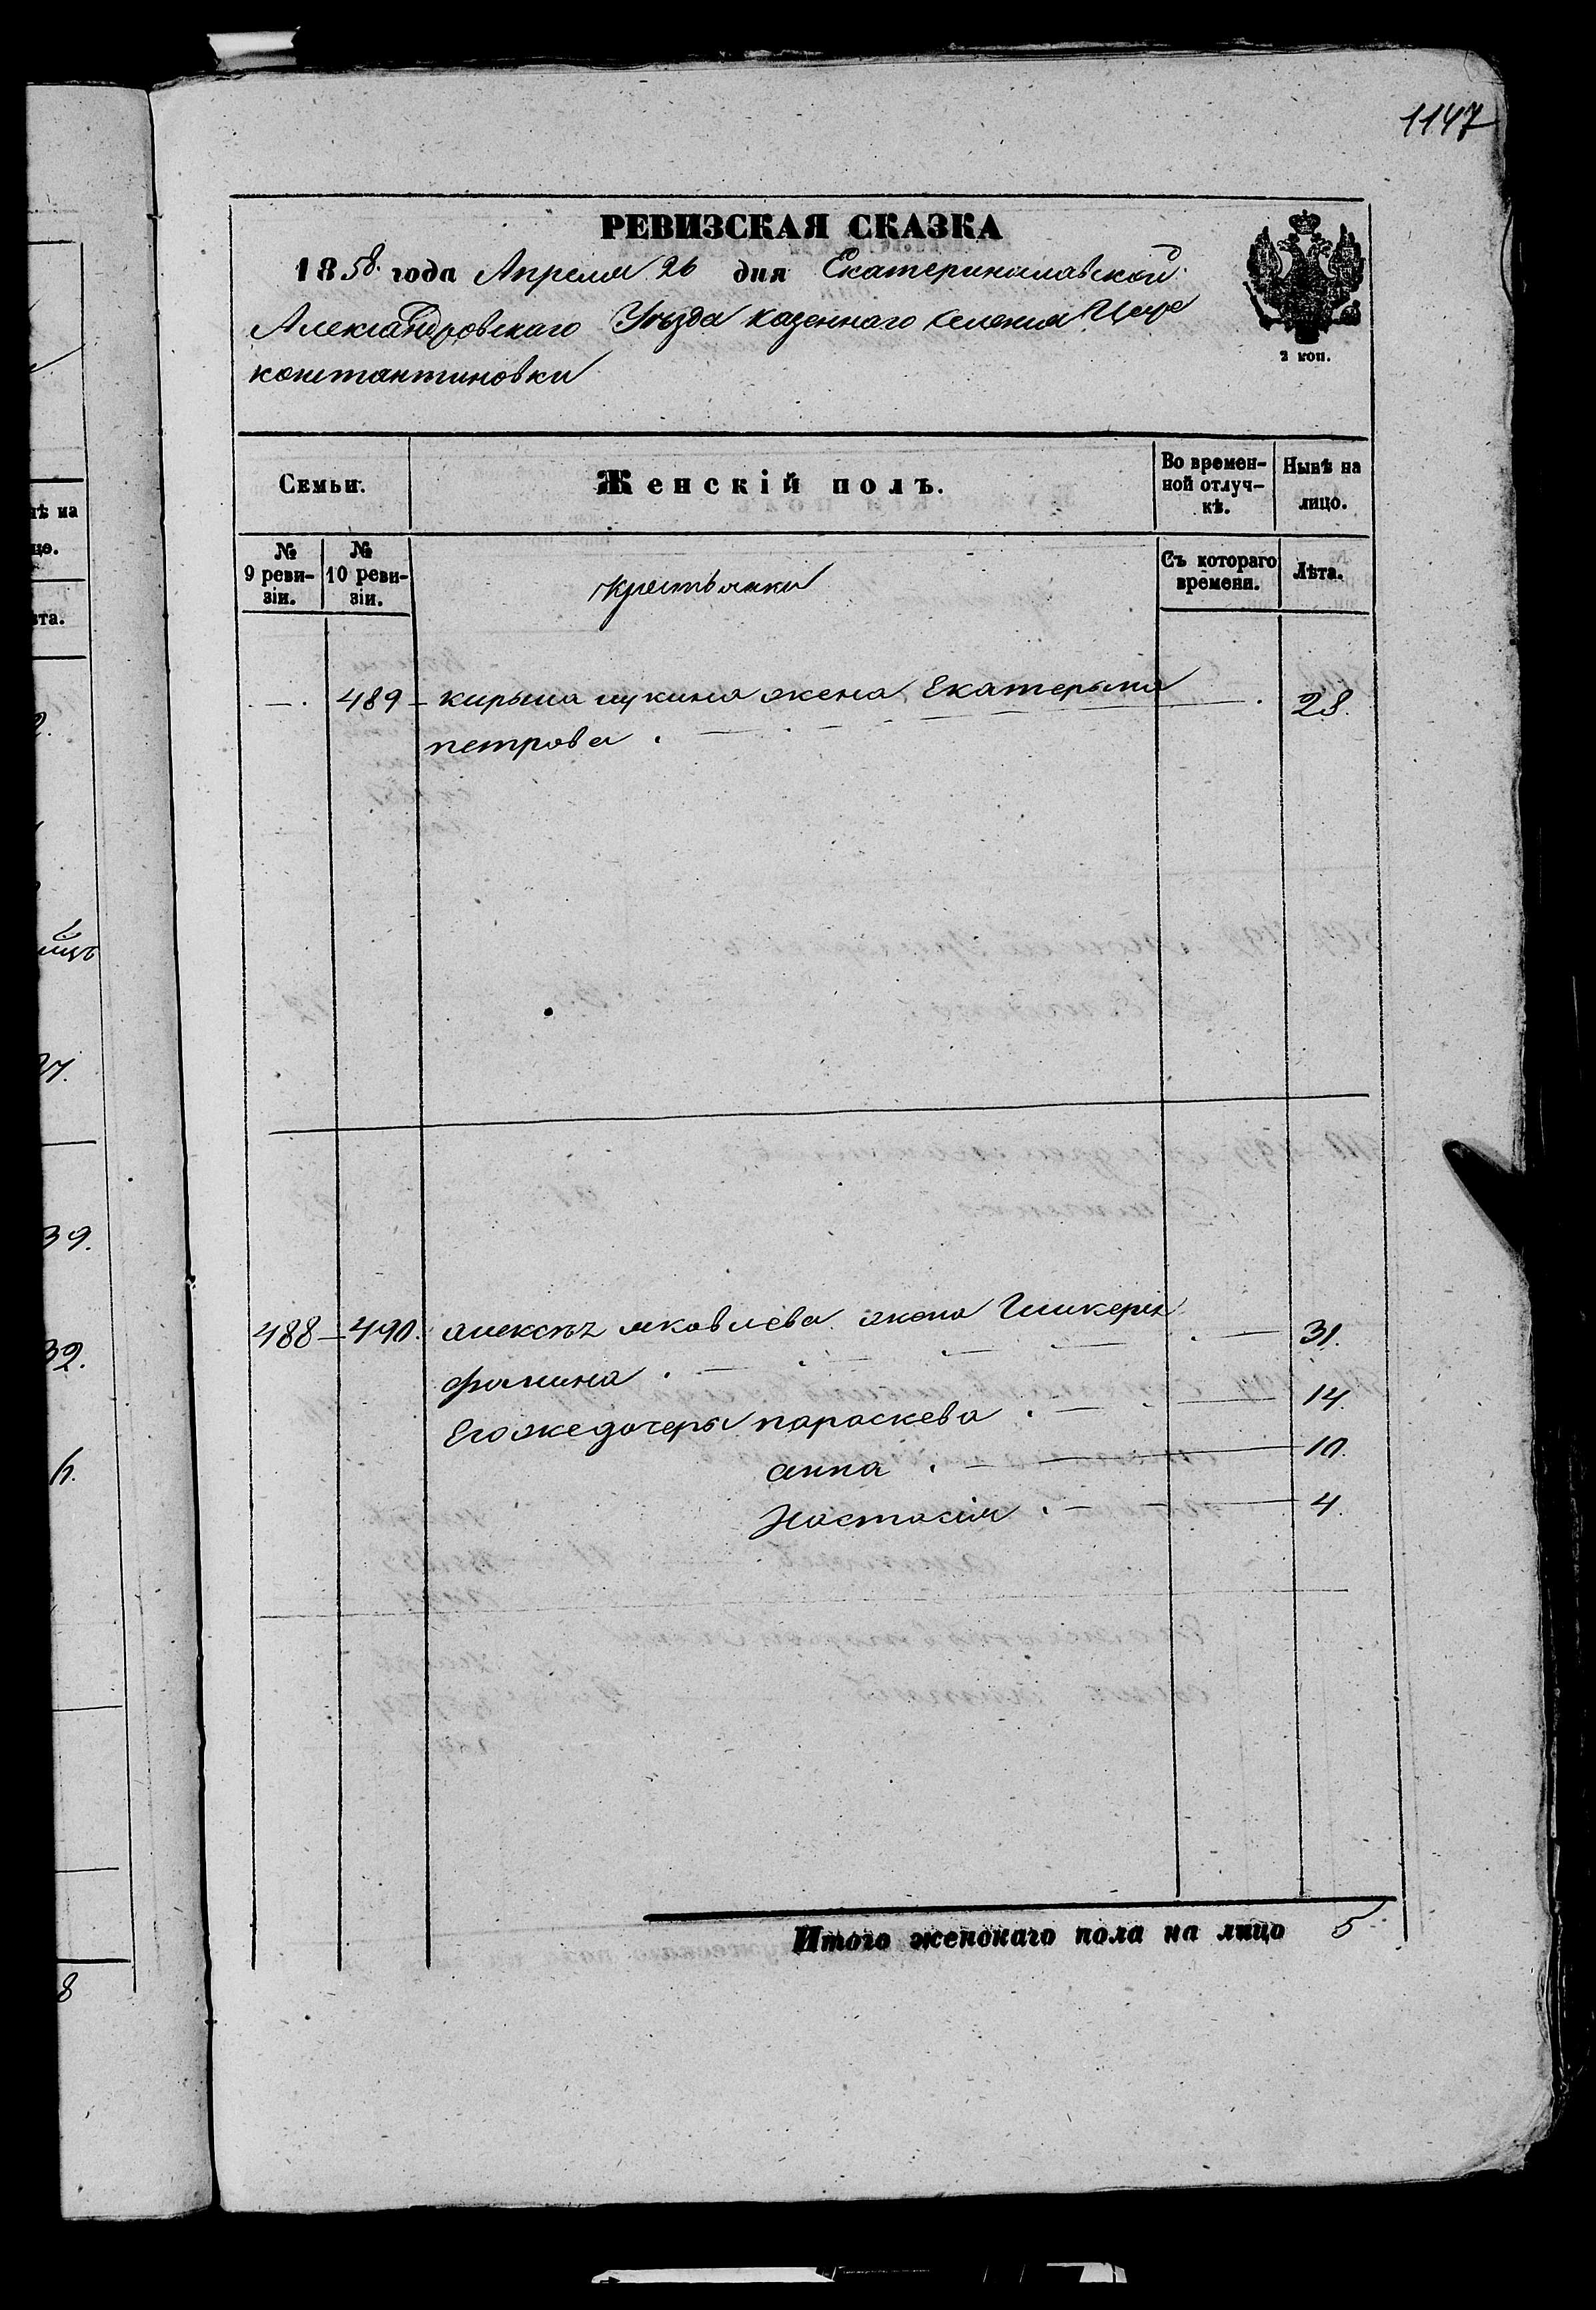 1147
РЕВИЗСКАЯ СКАЗКА
1858. года Апреля 26 дня Екатеринославской
Александровскаго Уѣзда казеннаго селения Царе
константиновки
2 коп.
Семьи.
Женскій полъ.
Во времен-
ной отлуч-
кѣ.
Нынѣ на
лицо.
№
9 реви-
зіи.
№
10 реви-
зіи.
крестьянки
Съ котораго
времени.
Лѣта.
489 кирыла лукина жена Екатерына 28.
петрова.
488 490. алексѣя яковлева жена Гликерія 31.
фомина.
Его же дочеры параскева 14.
анна 10.
Настасія 4.
Итого женскаго пола на лицо 5
нѣ на
цо.
ѣта.
2.
27.
39.
32.
6.
8